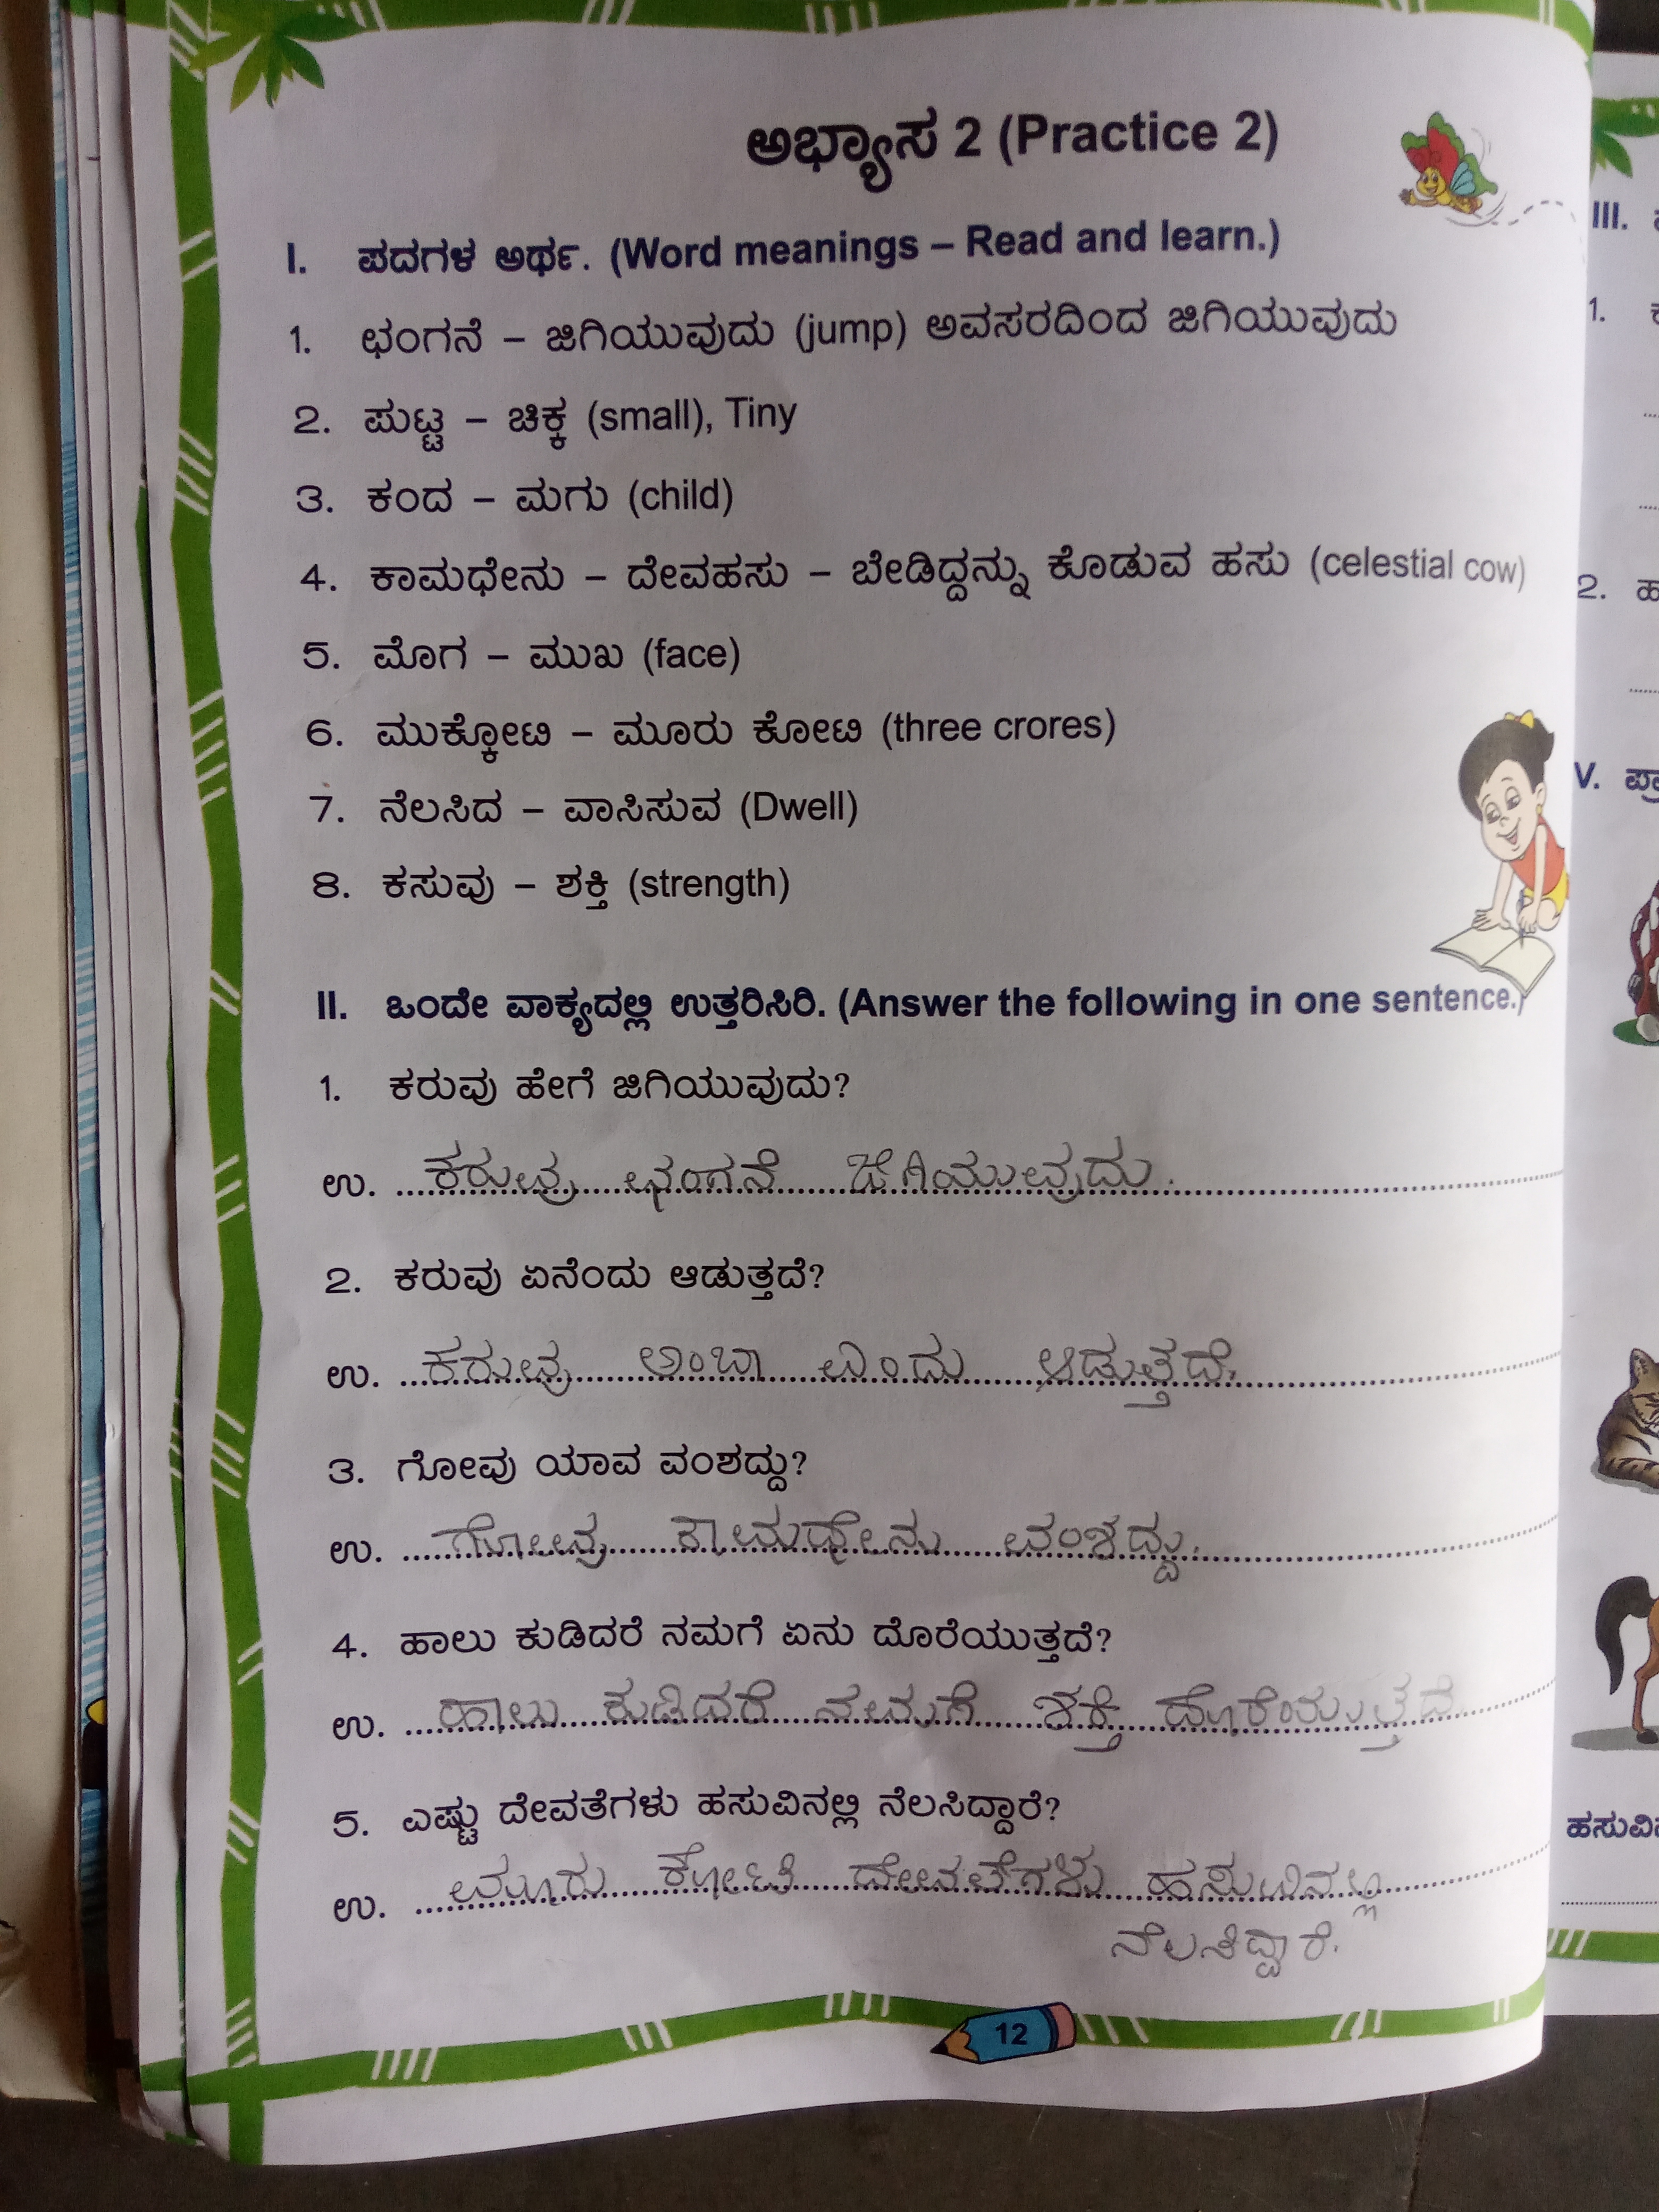 ಅಭ್ಯಾಸ 2 (Practice 2)
I. ಪದಗಳ ಅರ್ಥ. (Word meanings – Read and learn.)
1. ಛಂಗನೆ – ಜಿಗಿಯುವುದು (jump) ಅವಸರದಿಂದ ಜಿಗಿಯುವುದು
2. ಪುಟ್ಟ – ಚಿಕ್ಕ (small), Tiny
3. ಕಂದ – ಮಗು (child)
4. ಕಾಮಧೇನು – ದೇವಹಸು – ಬೇಡಿದ್ದನ್ನು ಕೊಡುವ ಹಸು (celestial cow)
5. ಮೊಗ – ಮುಖ (face)
6. ಮುಕ್ಕೋಟಿ – ಮೂರು ಕೋಟಿ (three crores)
7. ನೆಲಸಿದ – ವಾಸಿಸುವ (Dwell)
8. ಕಸುವು – ಶಕ್ತಿ (strength)
II. ಒಂದೇ ವಾಕ್ಯದಲ್ಲಿ ಉತ್ತರಿಸಿರಿ. (Answer the following in one sentence.)
1. ಕರುವು ಹೇಗೆ ಜಿಗಿಯುವುದು?
ಉ. ಕರುವು ಛಂಗನೆ ಜಿಗಿಯುವುದು.
2. ಕರುವು ಏನೆಂದು ಆಡುತ್ತದೆ?
ಉ. ಕರುವು ಅಂಬಾ ಎಂದು ಆಡುತ್ತದೆ.
3. ಗೋವು ಯಾವ ವಂಶದ್ದು?
ಉ. ಗೋವು ಕಾಮಧೇನು ವಂಶದ್ದು.
4. ಹಾಲು ಕುಡಿದರೆ ನಮಗೆ ಏನು ದೊರೆಯುತ್ತದೆ?
ಉ. ಹಾಲು ಕುಡಿದರೆ ನಮಗೆ ಶಕ್ತಿ ದೊರೆಯುತ್ತದೆ.
5. ಎಷ್ಟು ದೇವತೆಗಳು ಹಸುವಿನಲ್ಲಿ ನೆಲಸಿದ್ದಾರೆ?
ಉ. ಮೂರು ಕೋಟಿ ದೇವತೆಗಳು ಹಸುವಿನಲ್ಲಿ
ನೆಲಸಿದ್ದಾರೆ.
12
III.
1.
2.
V.